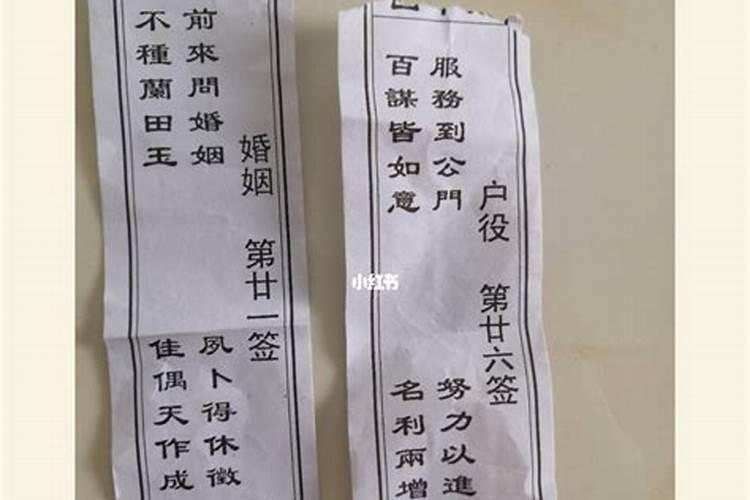 婚姻 第廿一签
前來問婚姻
不種蘭田玉
夙卜得休徵
佳偶天作成
户役 第廿六签
服務到公門
百謀皆如意
努力以進
名利兩增
小红书